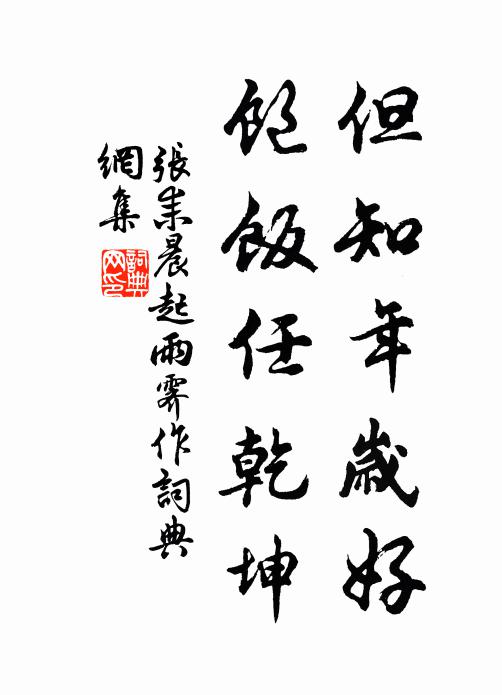 但知年歲好
飽飯任乾坤
張耒晨起雨霽作詞典
網集
詞典
网印